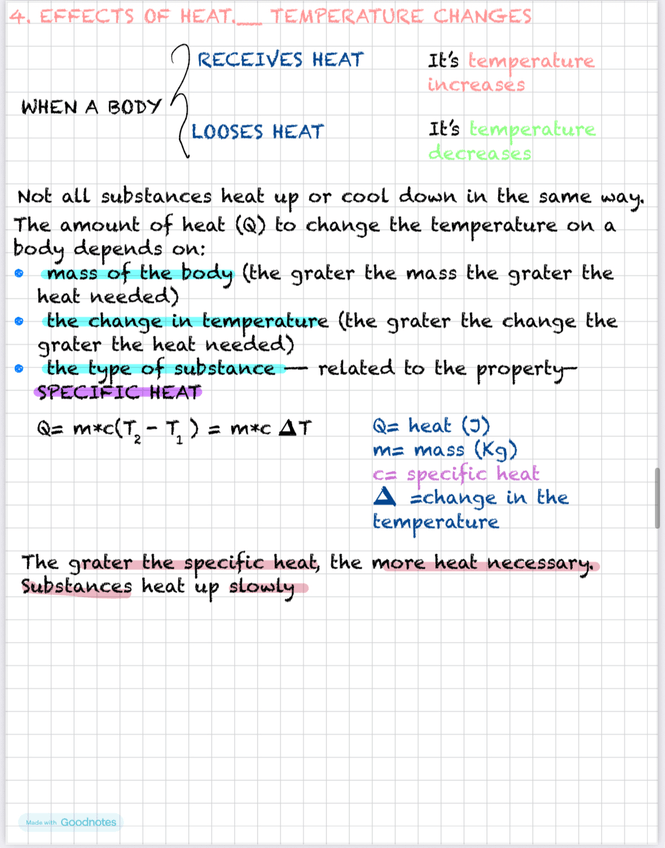 4. EFFECTS OF HEAT.__ TEMPERATURE CHANGES
RECEIVES HEAT
It's temperature
increases
WHEN A BODY
LOOSES HEAT
It's temperature
decreases
Not all substances heat up or cool down in the same way.
The amount of heat (Q) to change the temperature on a
body depends on:
• mass of the body (the grater the mass the grater the
heat needed)
• the change in temperature (the grater the change the
grater the heat needed)
• the type of substance — related to the property—
SPECIFIC HEAT
Q= m*c(T₂ - T₁ ) = m*c ΔT
Q= heat (J)
m= mass (Kg)
c= specific heat
Δ =change in the
temperature
The grater the specific heat, the more heat necessary.
Substances heat up slowly
Made with Goodnotes